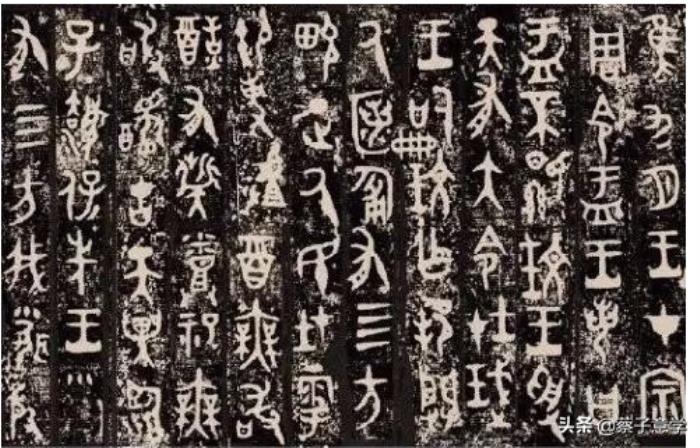 隹九月王才宗
周令盂王若曰
盂不顯玟王受
天有大令在珷
王嗣玟乍邦闢
氒匿匍有四方
畯正氒民在雩
御事䖒酉無敢
酖有祡烝祀無
敢醻古天異臨
子灋保先王
有四方我聞殷
头条 @蔡子意学